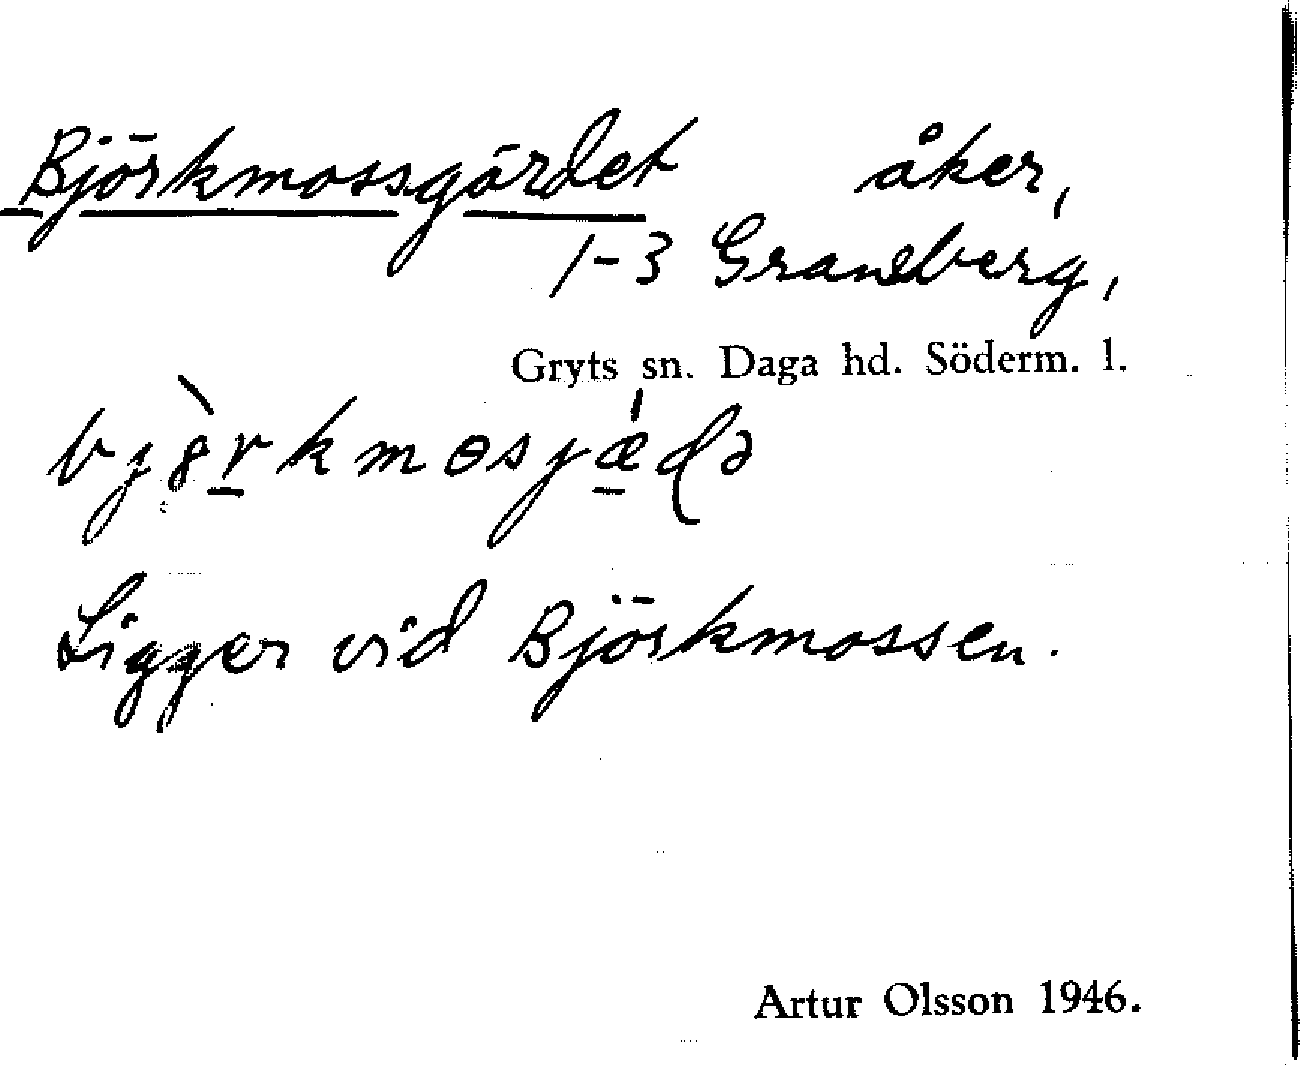 Björkmossgärdet åker,
1-3 Graneberg,
Gryts sn. Daga hd. Söderm. l.
Ligger vid Björkmossen.
Artur Olsson 1946.